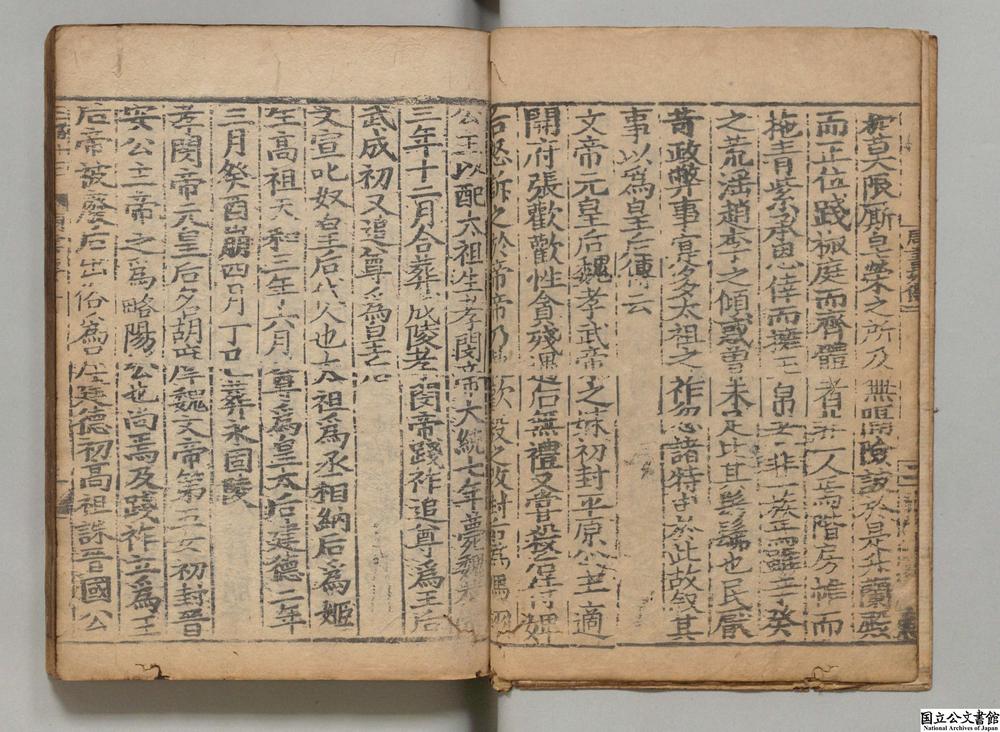 限厮皁榮之所及無隔險詖於是升蘭殿
而正位踐椒庭而齊體者非一人焉階房帷而
拖青紫承恩倖而擁玉帛者非一族焉雖辛癸
之荒淫趙李之傾惑曾未足比其髣髴也民厭
苛政弊事寔多太祖之祚忽諸特由於此故敘其
事以為皇后傳云
文帝元皇后魏孝武帝之妹初封平原公主適
開府張歡歡性貪殘遇后無禮又嘗殺后侍婢
后怒訴之於帝帝乃執歡殺之改封后為馮翊
公主以配太祖生孝閔帝大統七年薨魏恭帝
三年十二月合葬成陵孝閔帝踐祚追尊為王后
武成初又追尊為皇后
文宣叱奴皇后代人也太祖為丞相納后為姬
生高祖天和三年六月尊為皇太后建德二年
三月癸酉崩四月丁巳葬永固陵
孝閔帝元皇后名胡摩魏文帝第五女初封晉
安公主帝之為略陽公也尚焉及踐祚立為王
后帝被廢后出俗為尼建德初高祖誅晉國公
国立公文書館
National Archives of Japan